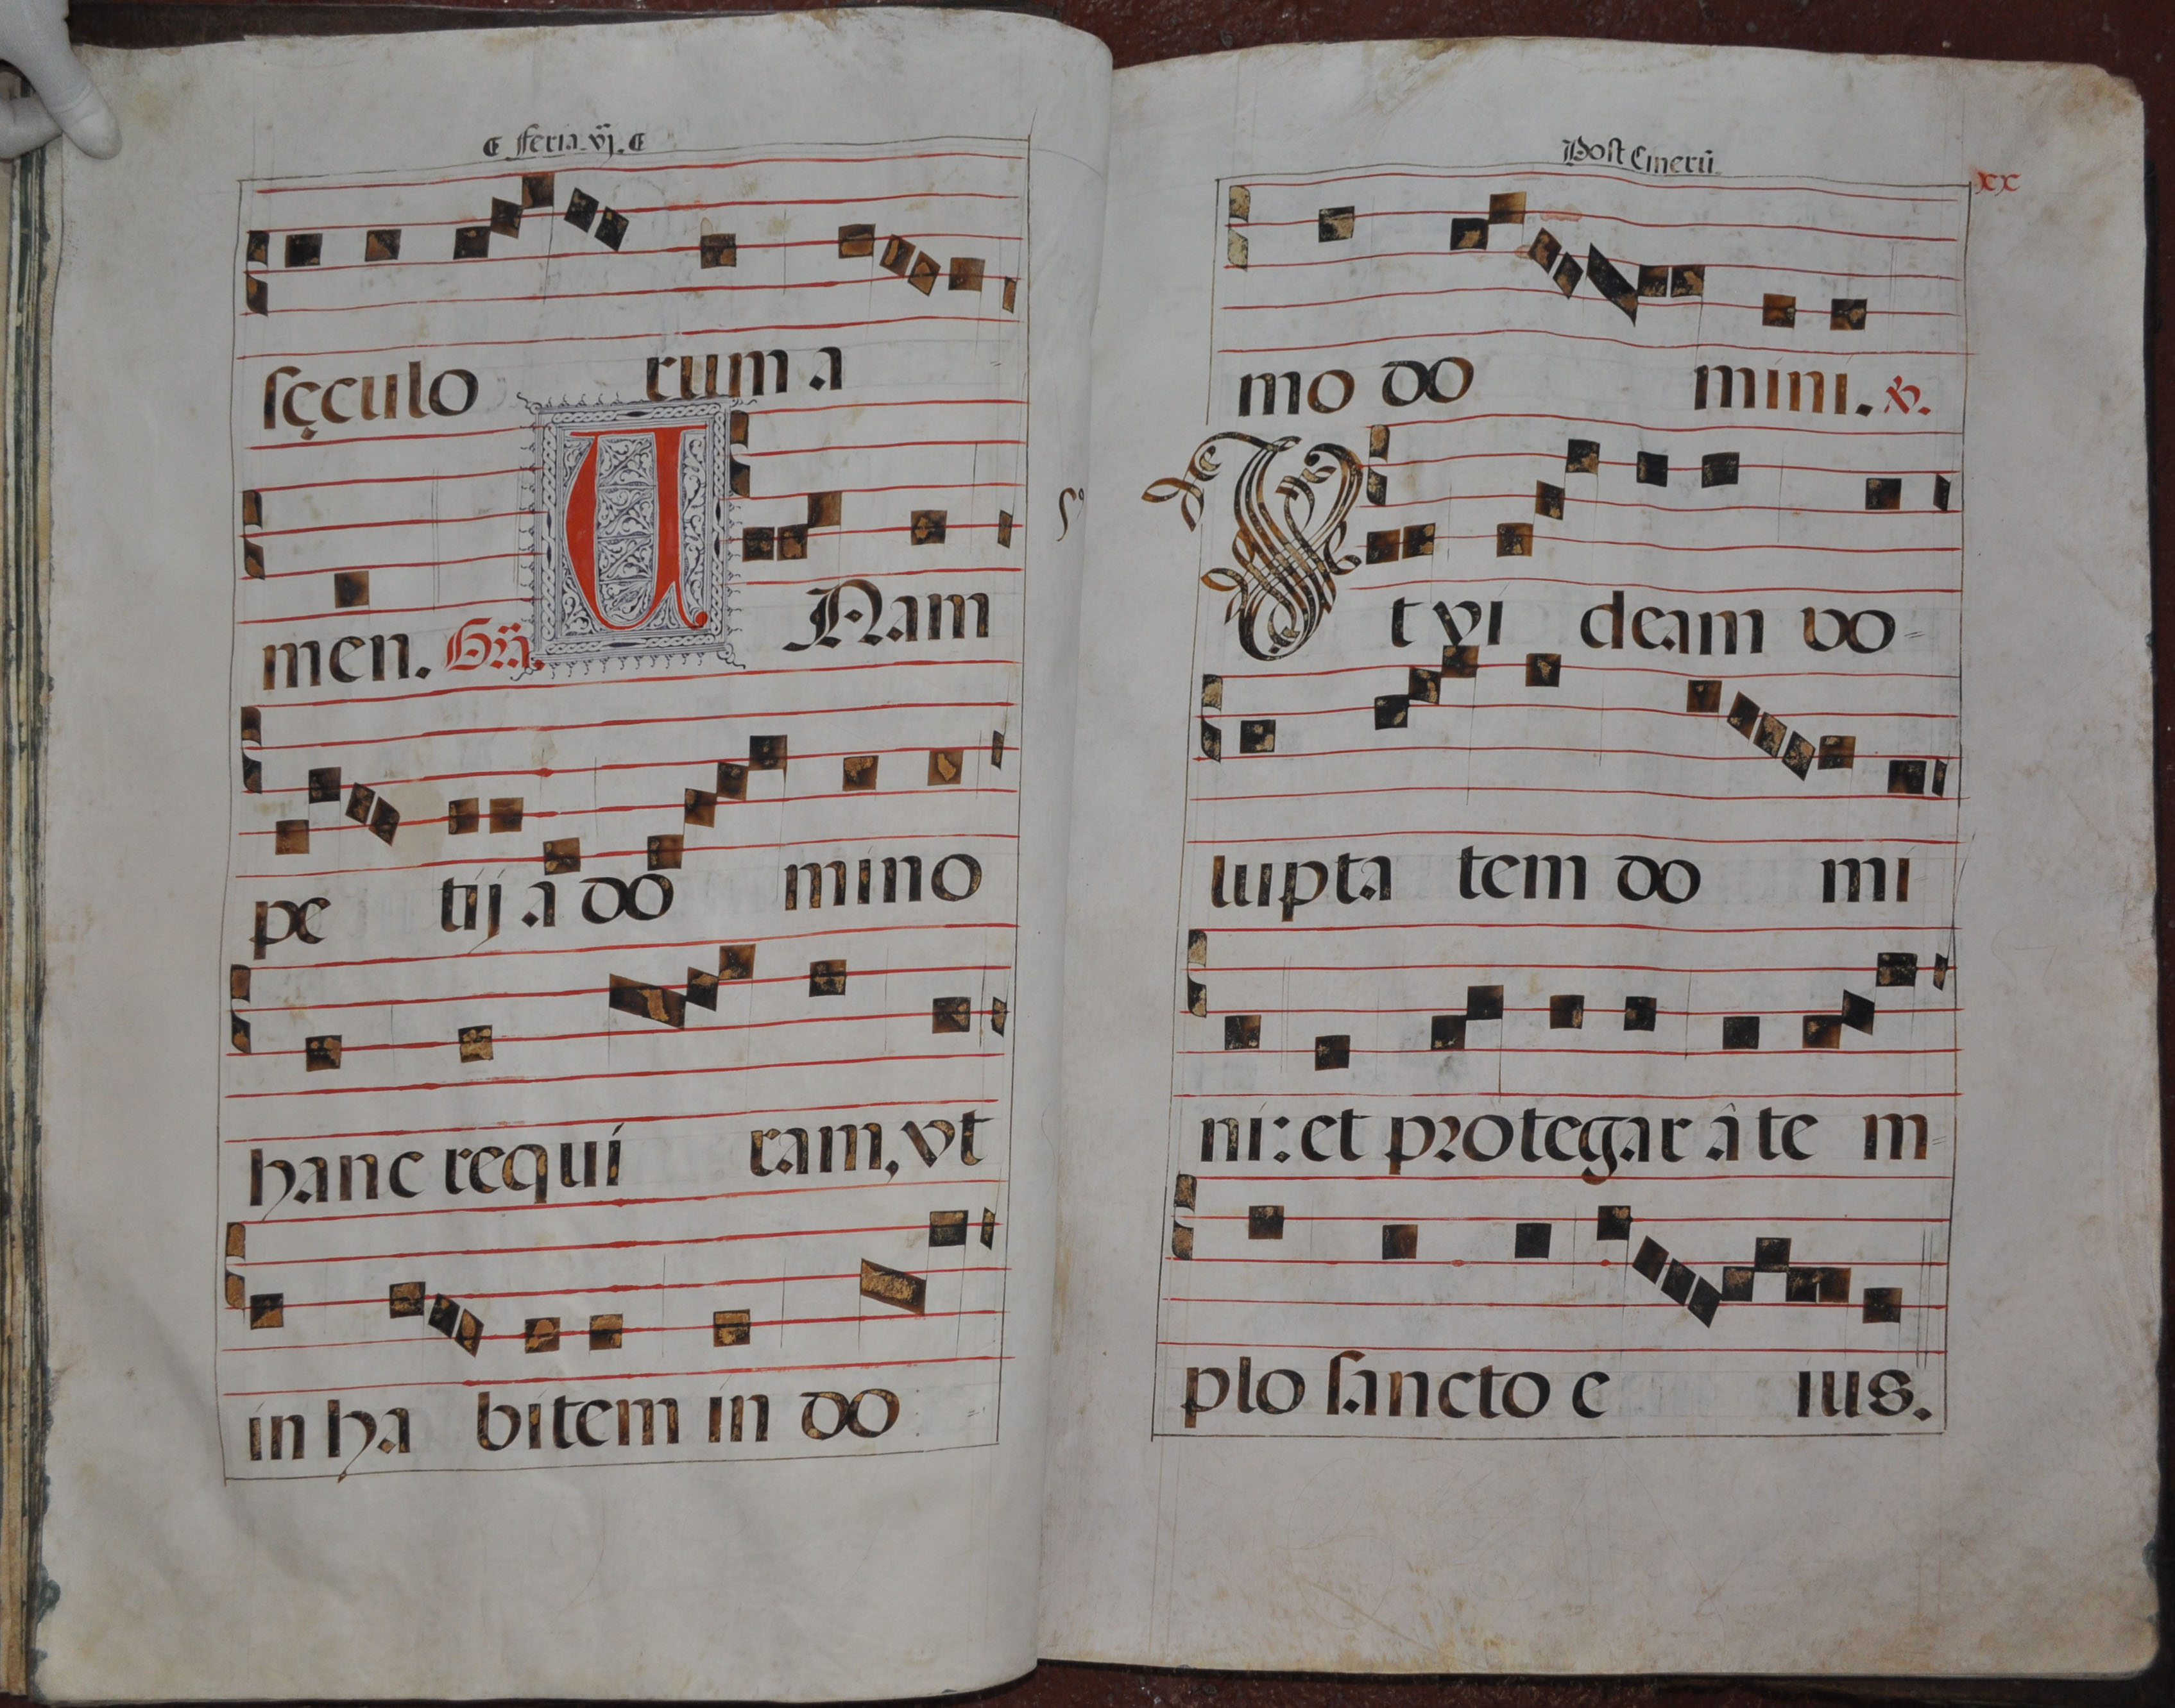 feria. vj.
sęculo rum a
men. Gra. U Nam
pe tij a do mino
hanc requi ram, vt
in ha bitem in do
Post Cinerū
xx
mo do mini. ℣.
V t vi deam vo-
lupta tem do mi
ni: et protegar â te m-
plo sancto e ius.